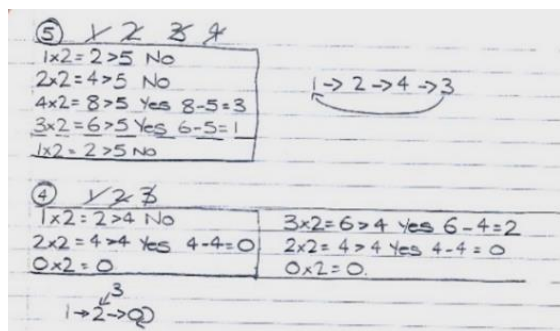 ⑤ 1 2 3 4
1x2=2>5 No
2x2=4>5 No
4x2=8>5 Yes 8-5=3
3x2=6>5 Yes 6-5=1
1x2=2>5 No
1→2→4→3
④ 1 2 3
1x2=2>4 No
2x2=4>4 Yes 4-4=0
0x2=0
3x2=6>4 Yes 6-4=2
2x2=4>4 Yes 4-4=0
0x2=0.
3
1→2→0